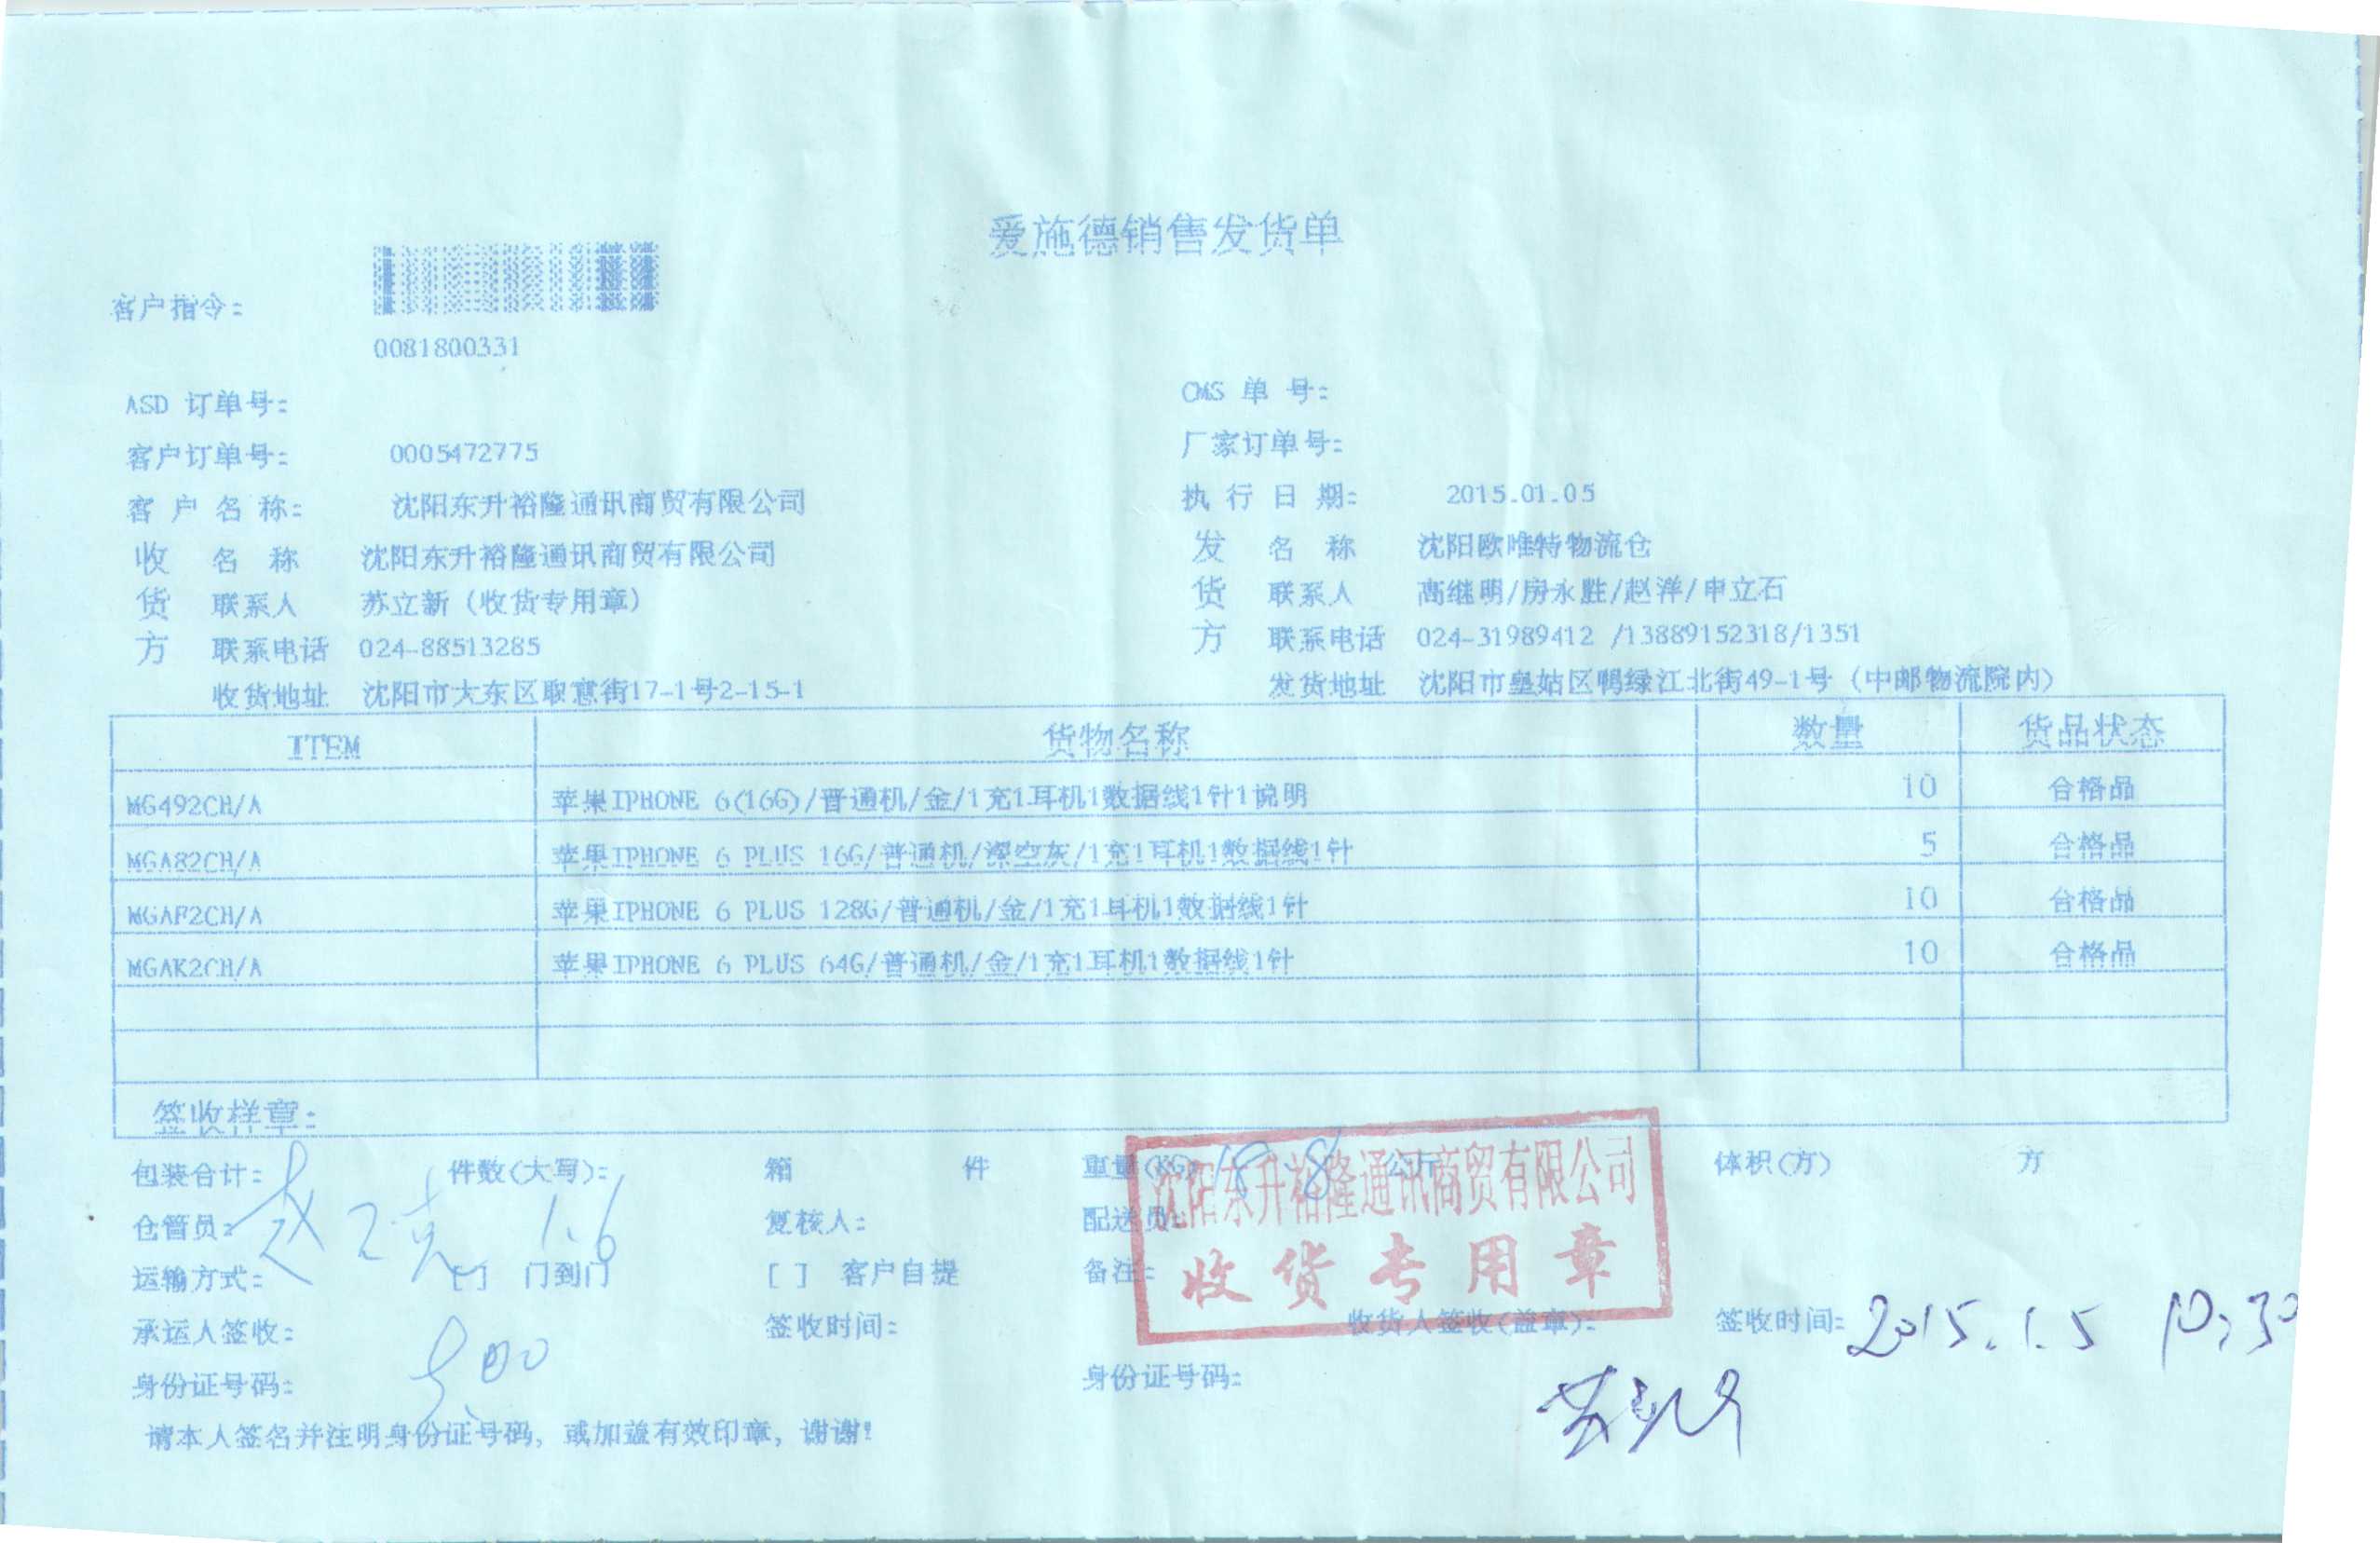 爱施德销售发货单
客户指令:
0081800331
ASD 订单号: CMS 单 号:
客户订单号: 0005472775 厂家订单号:
客 户 名 称: 沈阳东升裕隆通讯商贸有限公司 执 行 日 期: 2015.01.05
收 名 称 沈阳东升裕隆通讯商贸有限公司 发 名 称 沈阳欧唯特物流仓
货 联系人 苏立新(收货专用章) 货 联系人 高继明/房永胜/赵洋/申立石
方 联系电话 024-88513285 方 联系电话 024-31989412 /13889152318/1351
收货地址 沈阳市大东区取意街17-1号2-15-1 发货地址 沈阳市皇姑区鸭绿江北街49-1号(中邮物流院内)
ITEM 货物名称 数量 货品状态
MG492CH/A 苹果IPHONE 6(16G)/普通机/金/1充1耳机1数据线1针1说明 10 合格品
MGA82CH/A 苹果IPHONE 6 PLUS 16G/普通机/深空灰/1充1耳机1数据线1针 5 合格品
MGAF2CH/A 苹果IPHONE 6 PLUS 128G/普通机/金/1充1耳机1数据线1针 10 合格品
MGAK2CH/A 苹果IPHONE 6 PLUS 64G/普通机/金/1充1耳机1数据线1针 10 合格品
签收样章:
包装合计: 件数(大写): 箱 件 重量(KG): 18.8 公斤 体积(方) 方
沈阳东升裕隆通讯商贸有限公司
仓管员: 1.6 复核人: 配送员:
收货专用章
运输方式: [ ] 门到门 [ ] 客户自提 备注:
承运人签收: 签收时间: 收货人签收(盖章): 签收时间: 2015.1.5 10:30
身份证号码: 身份证号码:
苏立新
请本人签名并注明身份证号码, 或加盖有效印章, 谢谢!